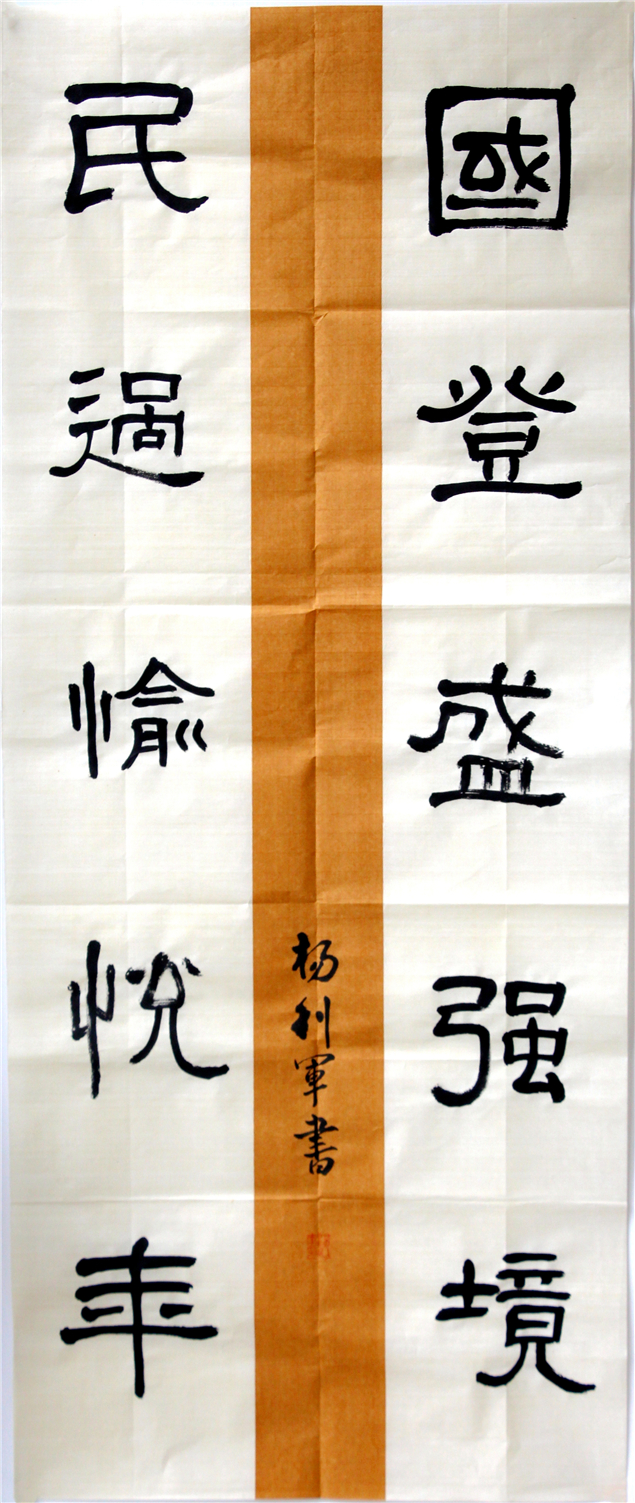 國登盛强境
民過愉悦年
杨利軍書